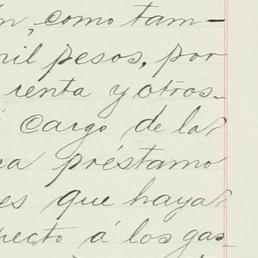 n, como tam-
mil pesos, por
renta y otros
cargo de la
ca préstamo
es que haya
pecto á los gas-